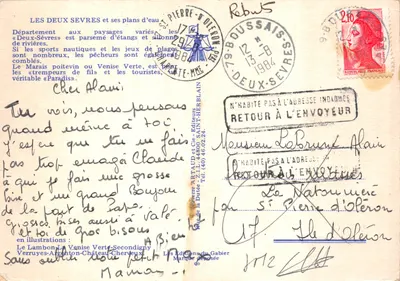 LES DEUX SEVRES et ses plans d'eau
Département aux paysages variés, les
«Deux-Sèvres» est parsemé d'étangs et sillonné
de rivières.
Si les sports nautiques et les jeux de plage
sont nombreux, les pêcheurs sont également
comblés.
Le Marais poitevin ou Venise Verte, est le
des trempeurs de fils et les touristes
véritable «Paradis».
Cher Alain.
Tu vois, nous pensons
quand même à toi
j'espère que tu ne fais
pas trop enragé Claude
à qui je fais une grosse
bise et un grand Bonjour
de la part de Papo.
Grosses bises aussi à Valé
et toi de gros bisous
A Bien
Sans oublier mon petit
Maman
en illustrations :
Le Lambon, La Venise Verte, Secondigny
Verruyes, Argenton-Château, Cherveux
Editions ARTAUD
44800 SAINT-HERBLAIN
Tél. (40) 46.02.24
Rebut
ST PIERRE-D'OLERON
CHARENTE-MME
79 BOUSSAIS
DEUX-SEVRES
12H
13-8
1984
2,10
N'HABITE PAS À L'ADRESSE INDIQUÉE
RETOUR A L'ENVOYEUR
N'HABITE PAS À L'ADRESSE
RETOUR A L'ENVOYEUR
Monsieur Alain
La Natonnière
par St Pierre d'Oléron
17 Ile d'Oléron